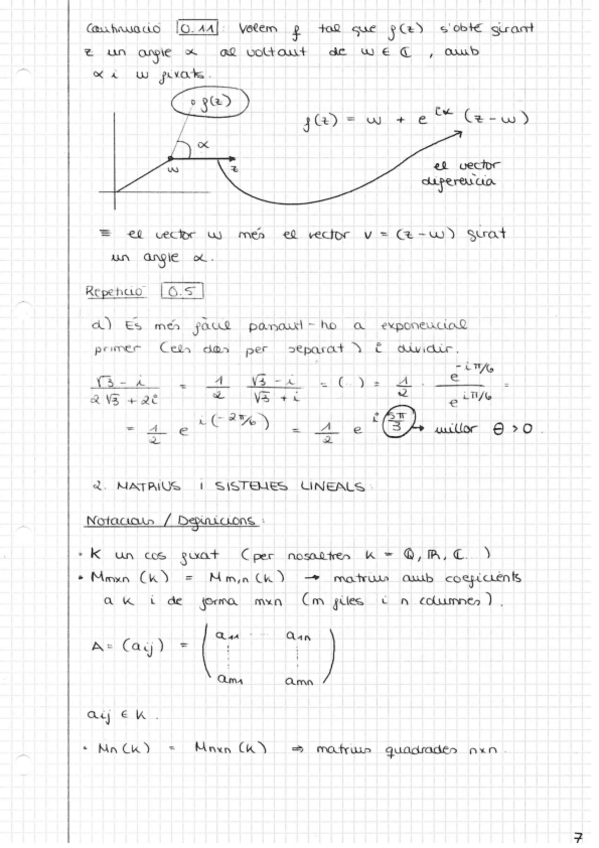 Continuació 0.11: Volem f tal que f(z) s'obté girant
z un angle α al voltant de w ∈ ℂ, amb
α i w fixats.
f(z)
α
w z
f(z) = w + e^{iα} (z - w)
el vector
diferència
≡ el vector w més el vector v = (z - w) girat
un angle α.
Repetició 0.5
d) És més fàcil passant-ho a exponencial
primer (els dos per separat) i dividir.
\frac{√3 - i}{2√3 + 2i} = \frac{1}{2} \frac{√3 - i}{√3 + i} = (...) = \frac{1}{2} · \frac{e^{-iπ/6}}{e^{iπ/6}} =
= \frac{1}{2} e^{i(-2π/6)} = \frac{1}{2} e^{i \frac{5π}{3}} → millor θ > 0.
2. MATRIUS I SISTEMES LINEALS
Notacions / Definicions:
• K un cos fixat (per nosaltres K = ℚ, ℝ, ℂ ...)
• Mmxn (K) = Mm,n (K) → matrius amb coeficients
a K i de forma mxn (m files i n columnes).
A = (aij) = \begin{pmatrix} a_{11} & \cdots & a_{1n} \\ \vdots & & \vdots \\ a_{m1} & & a_{mn} \end{pmatrix}
aij ∈ K.
• Mn (K) = Mnxn (K) ⇒ matrius quadrades nxn.
7